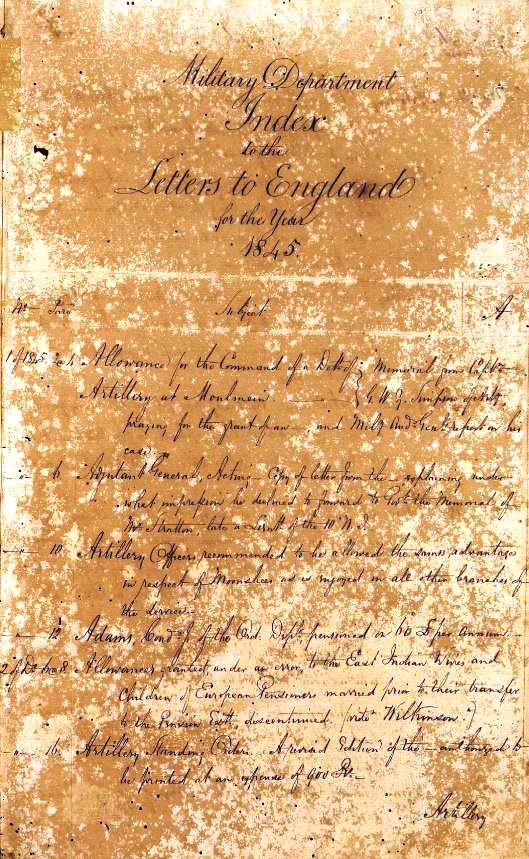 Military Department
Index
to the
Letters to England
for the Year
1845.
No Para Subject A
1 of 1845 2 a 4 Allowance for the Command of a Dett of Memorial from Captn
Artillery at Moulmein G. W. Y. Simpson of Arty
praying for the grant of an — and Mily Audr Genl's report on his
case
" 6 Adjutant General, Acting — Copy of letter from the — explaining under
what impression he declined to forward to Govt the Memorial of
Mr Stratton, late a Serjt of the 10 N. I.
" 10 Artillery Officers recommended to be allowed the same advantage
in respect of Moonshees as is enjoyed in all other branches of
the service —
" 12 Adams, Condr J. of the Ord. Dept pensioned on 60 £ per annum —
2 of do 6 a 8 Allowances granted under an error, to the East Indian Wives and
Children of European Pensioners married prior to their transfer
to the Pension Estt discontinued. (vide "Wilkinson.")
" 16 Artillery Standing Orders. A revised Edition of the — authorized to
be printed at an expense of 900 Rs —
Artillery